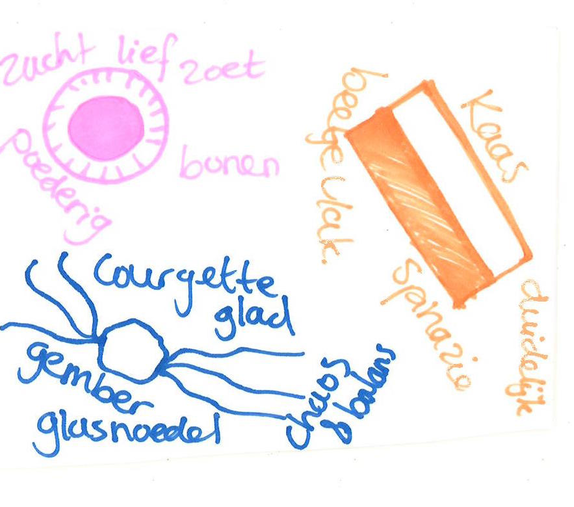 zacht lief zoet
poederig
bonen
beetje vlak.
Kaas
spinazie
duidelijk
courgette
glad
gember
glasnoedel
chaos
& balans